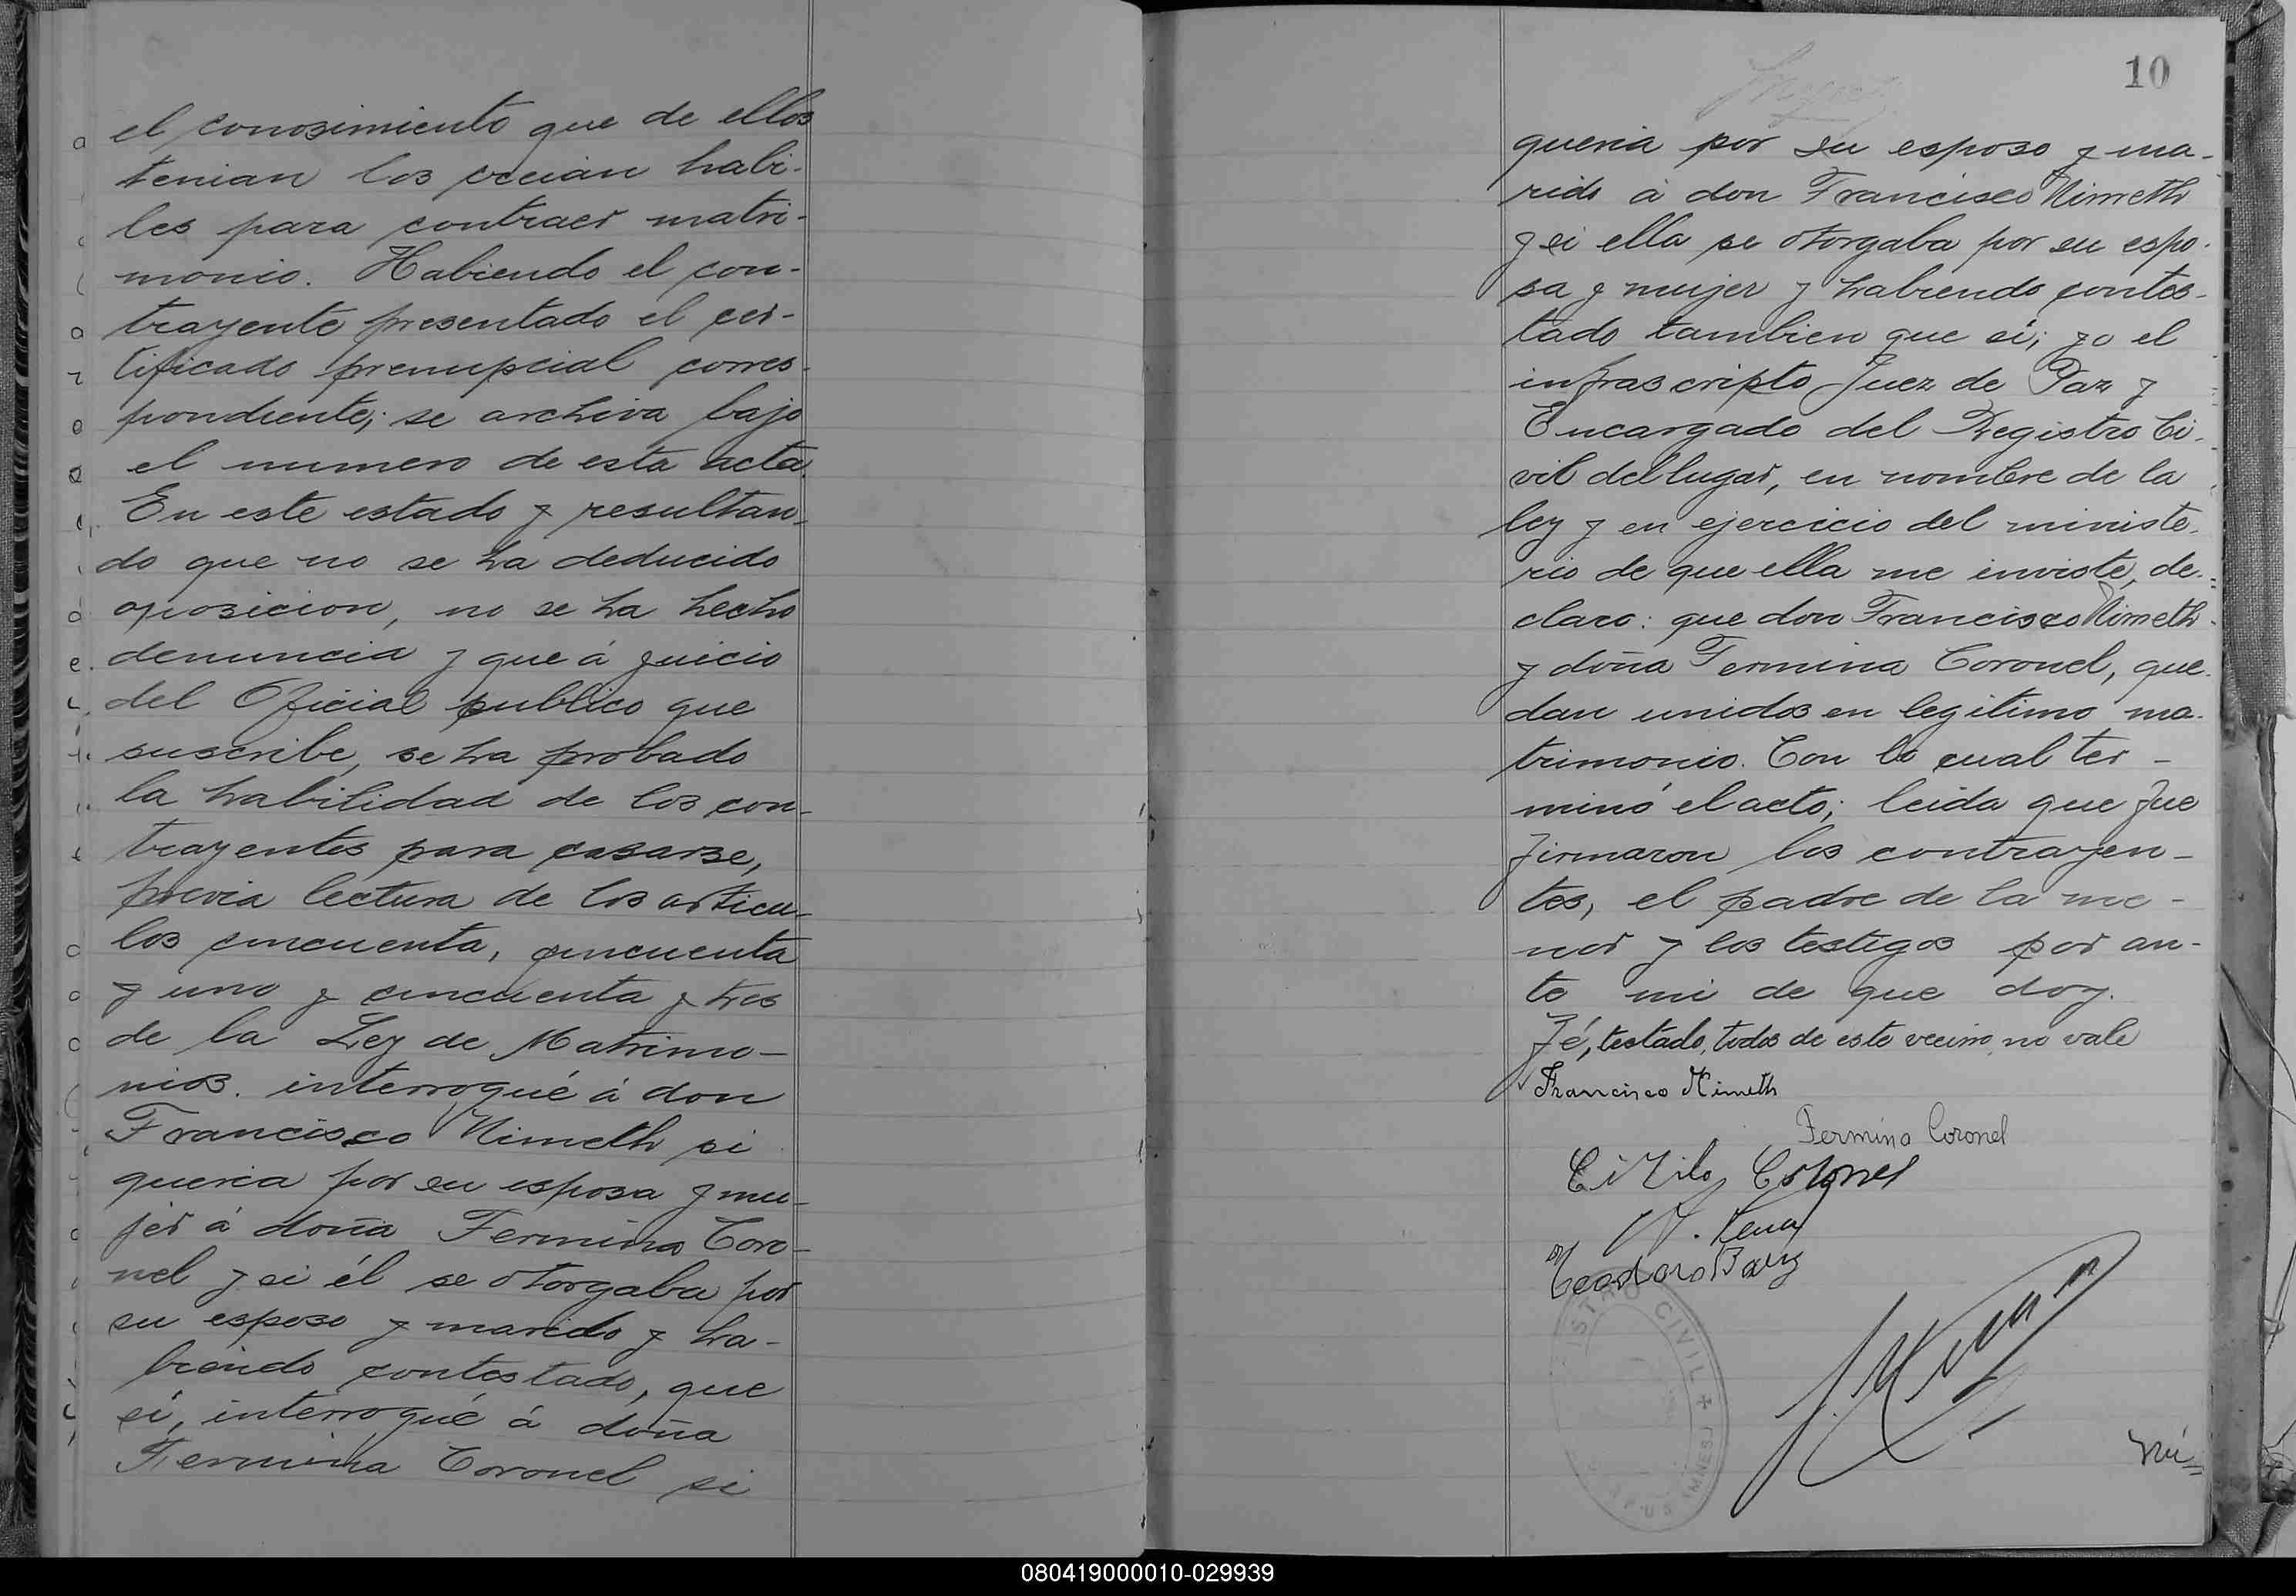 el conosimiento que de ellos
tenian los creian habi-
les para contraer matri-
monio. Habiendo el con-
trayente presentado el cer-
tificado prenupcial corres-
pondiente; se archiva bajo
el numero de esta acta.
En este estado y resultan-
do que no se ha deducido
oposicion, no se ha hecho
denuncia y que á juicio
del Oficial publico que
suscribe, se ha probado
la habilidad de los con-
trayentes para casarse,
previa lectura de los articu-
los cincuenta, cincuenta
y uno y cincuenta y tres
de la Ley de Matrimo-
nios. interrogué á don
Francisco Nimeth si
queria por su esposa y mu-
jer á doña Fermina Coro-
nel y si él se otorgaba por
su esposo y marido y ha-
biendo contestado, que
si, interrogué á doña
Fermina Coronel si
10
queria por su esposo y ma-
rido á don Francisco Nimeth
y si ella se otorgaba por su espo-
sa y mujer y habiendo contes-
tado tambien que si; yo el
infrascripto Juez de Paz y
Encargado del Registro Ci-
vil del lugar, en nombre de la
ley y en ejercicio del ministe-
rio de que ella me inviste, de-
claro: que don Francisco Nimeth
y doña Fermina Coronel, que-
dan unidos en legitimo ma-
trimonio. Con lo cual ter-
minó el acto; leida que fue
firmaron los contrayen-
tes, el padre de la me-
nor y los testigos por an-
te mi de que doy.
fé, testado, todos de este vecino, no vale
Francisco Nimeth
Fermina Coronel
Cirilo Coronel
Teodoro
CIVIL
Nú=
080419000010-029939